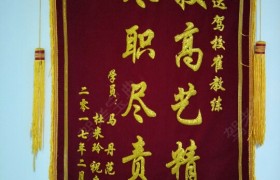 送驾校崔教练
技高艺精
尽职尽责
学员:马丹范
杜米玲祝
二零一七年二月